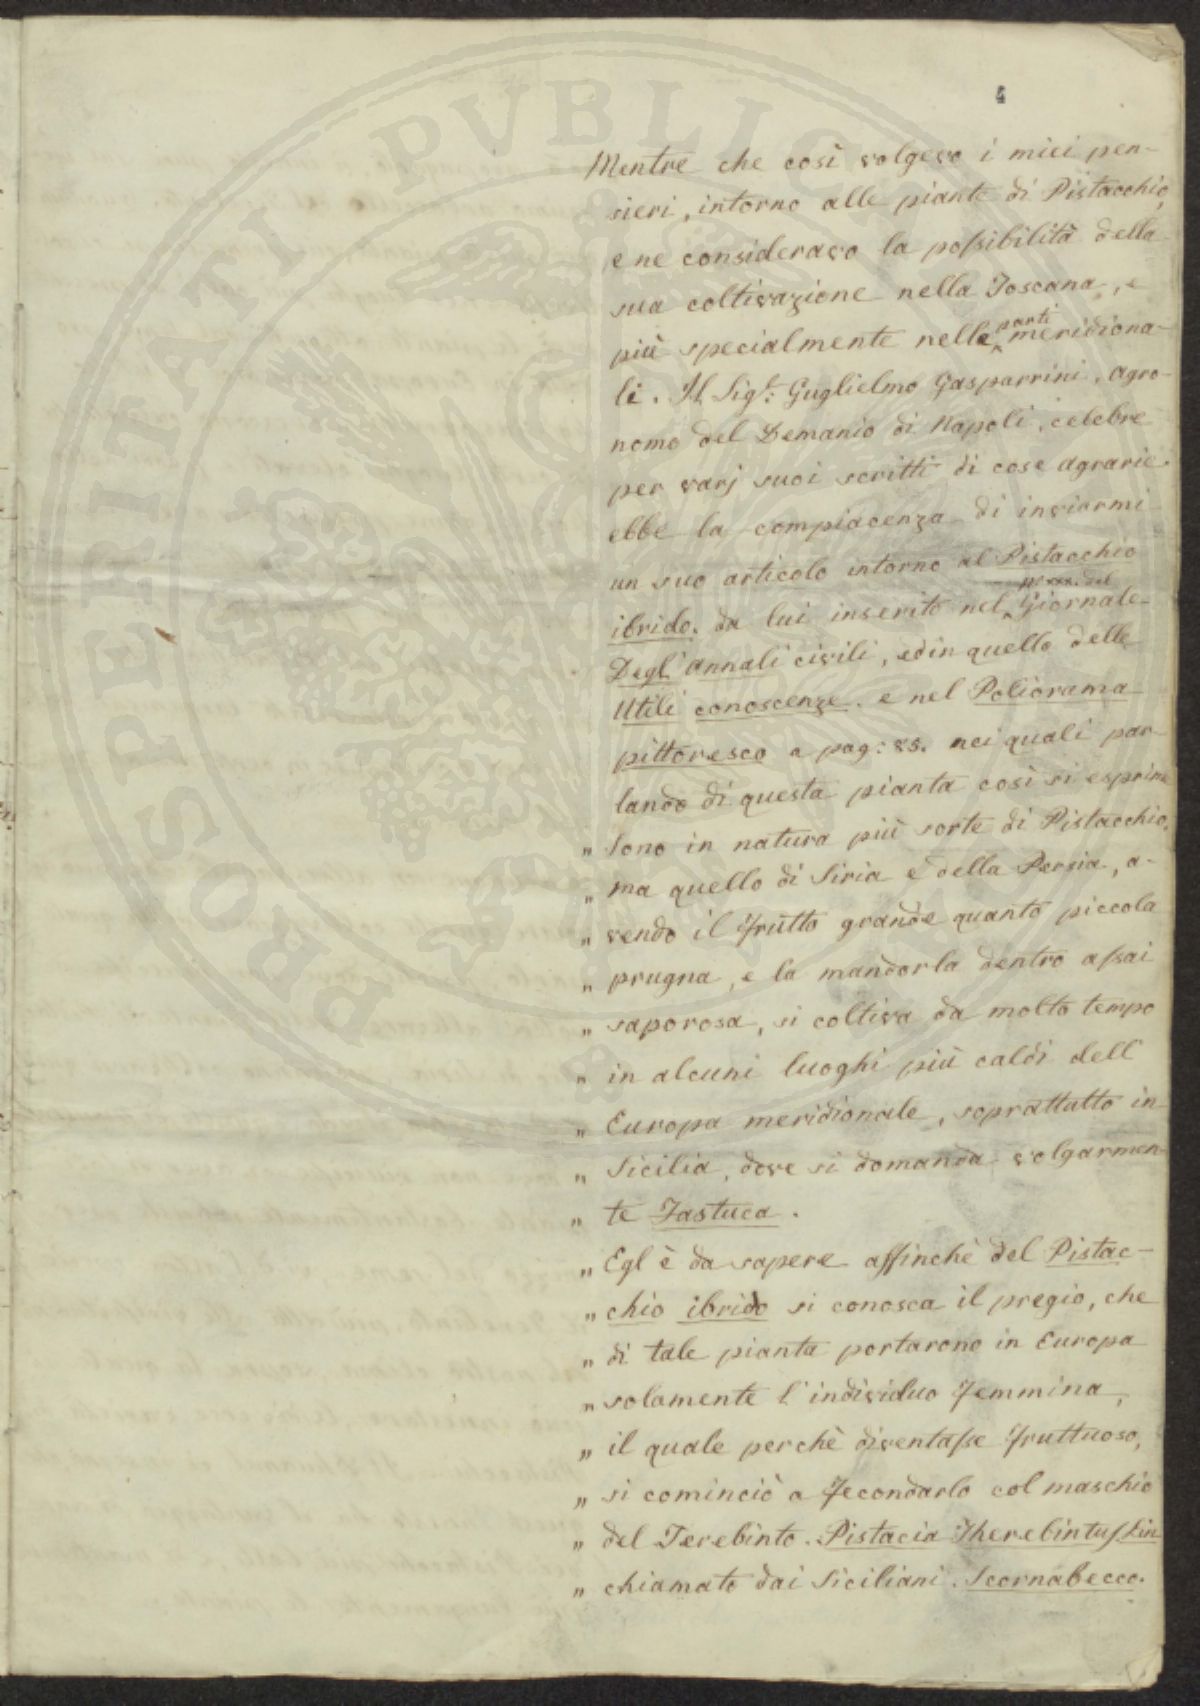 4
Mentre che così volgevo i miei pen-
sieri, intorno alle piante di Pistacchio,
e ne consideravo la poſsibilità della
sua coltivazione nella Toscana, e
più specialmente nelle parti meridiona-
li. Il Sigr: Guglielmo Gasparrini, agro-
nomo del Demanio di Napoli, celebre
per varj suoi scritti di cose agrarie.
ebbe la compiacenza di inviarmi
un suo articolo intorno al Pistacchio
ibrido. da lui inserito nel del Giornale
Degl' Annali civili, ed in quello delle
Utili conoscenze. e nel Poliorama
pittoresco a pag: nei quali par-
lando di questa pianta così si esprime
„ Sono in natura più sorte di Pistacchio,
„ ma quello di Siria e della Persia, a-
„ vendo il frutto grande quanto piccola
„ prugna, e la mandorla dentro aſsai
„ saporosa, si coltiva da molto tempo
„ in alcuni luoghi più caldi dell'
„ Europa meridionale, soprattutto in
„ Sicilia, dove si domanda volgarmen-
„ te Fastuca.
„ Egl è da sapere affinchè del Pistac-
„ chio ibrido si conosca il pregio, che
„ di tale pianta portarono in Europa
„ solamente l'individuo femmina,
„ il quale perchè diventaſse fruttuoso,
„ si cominciò a fecondarlo col maschio
„ del Terebinto. Pistacia Therebintuſ Lin
„ chiamato dai Siciliani. Scornabecco.
PROSPERITATI PVBLICAE